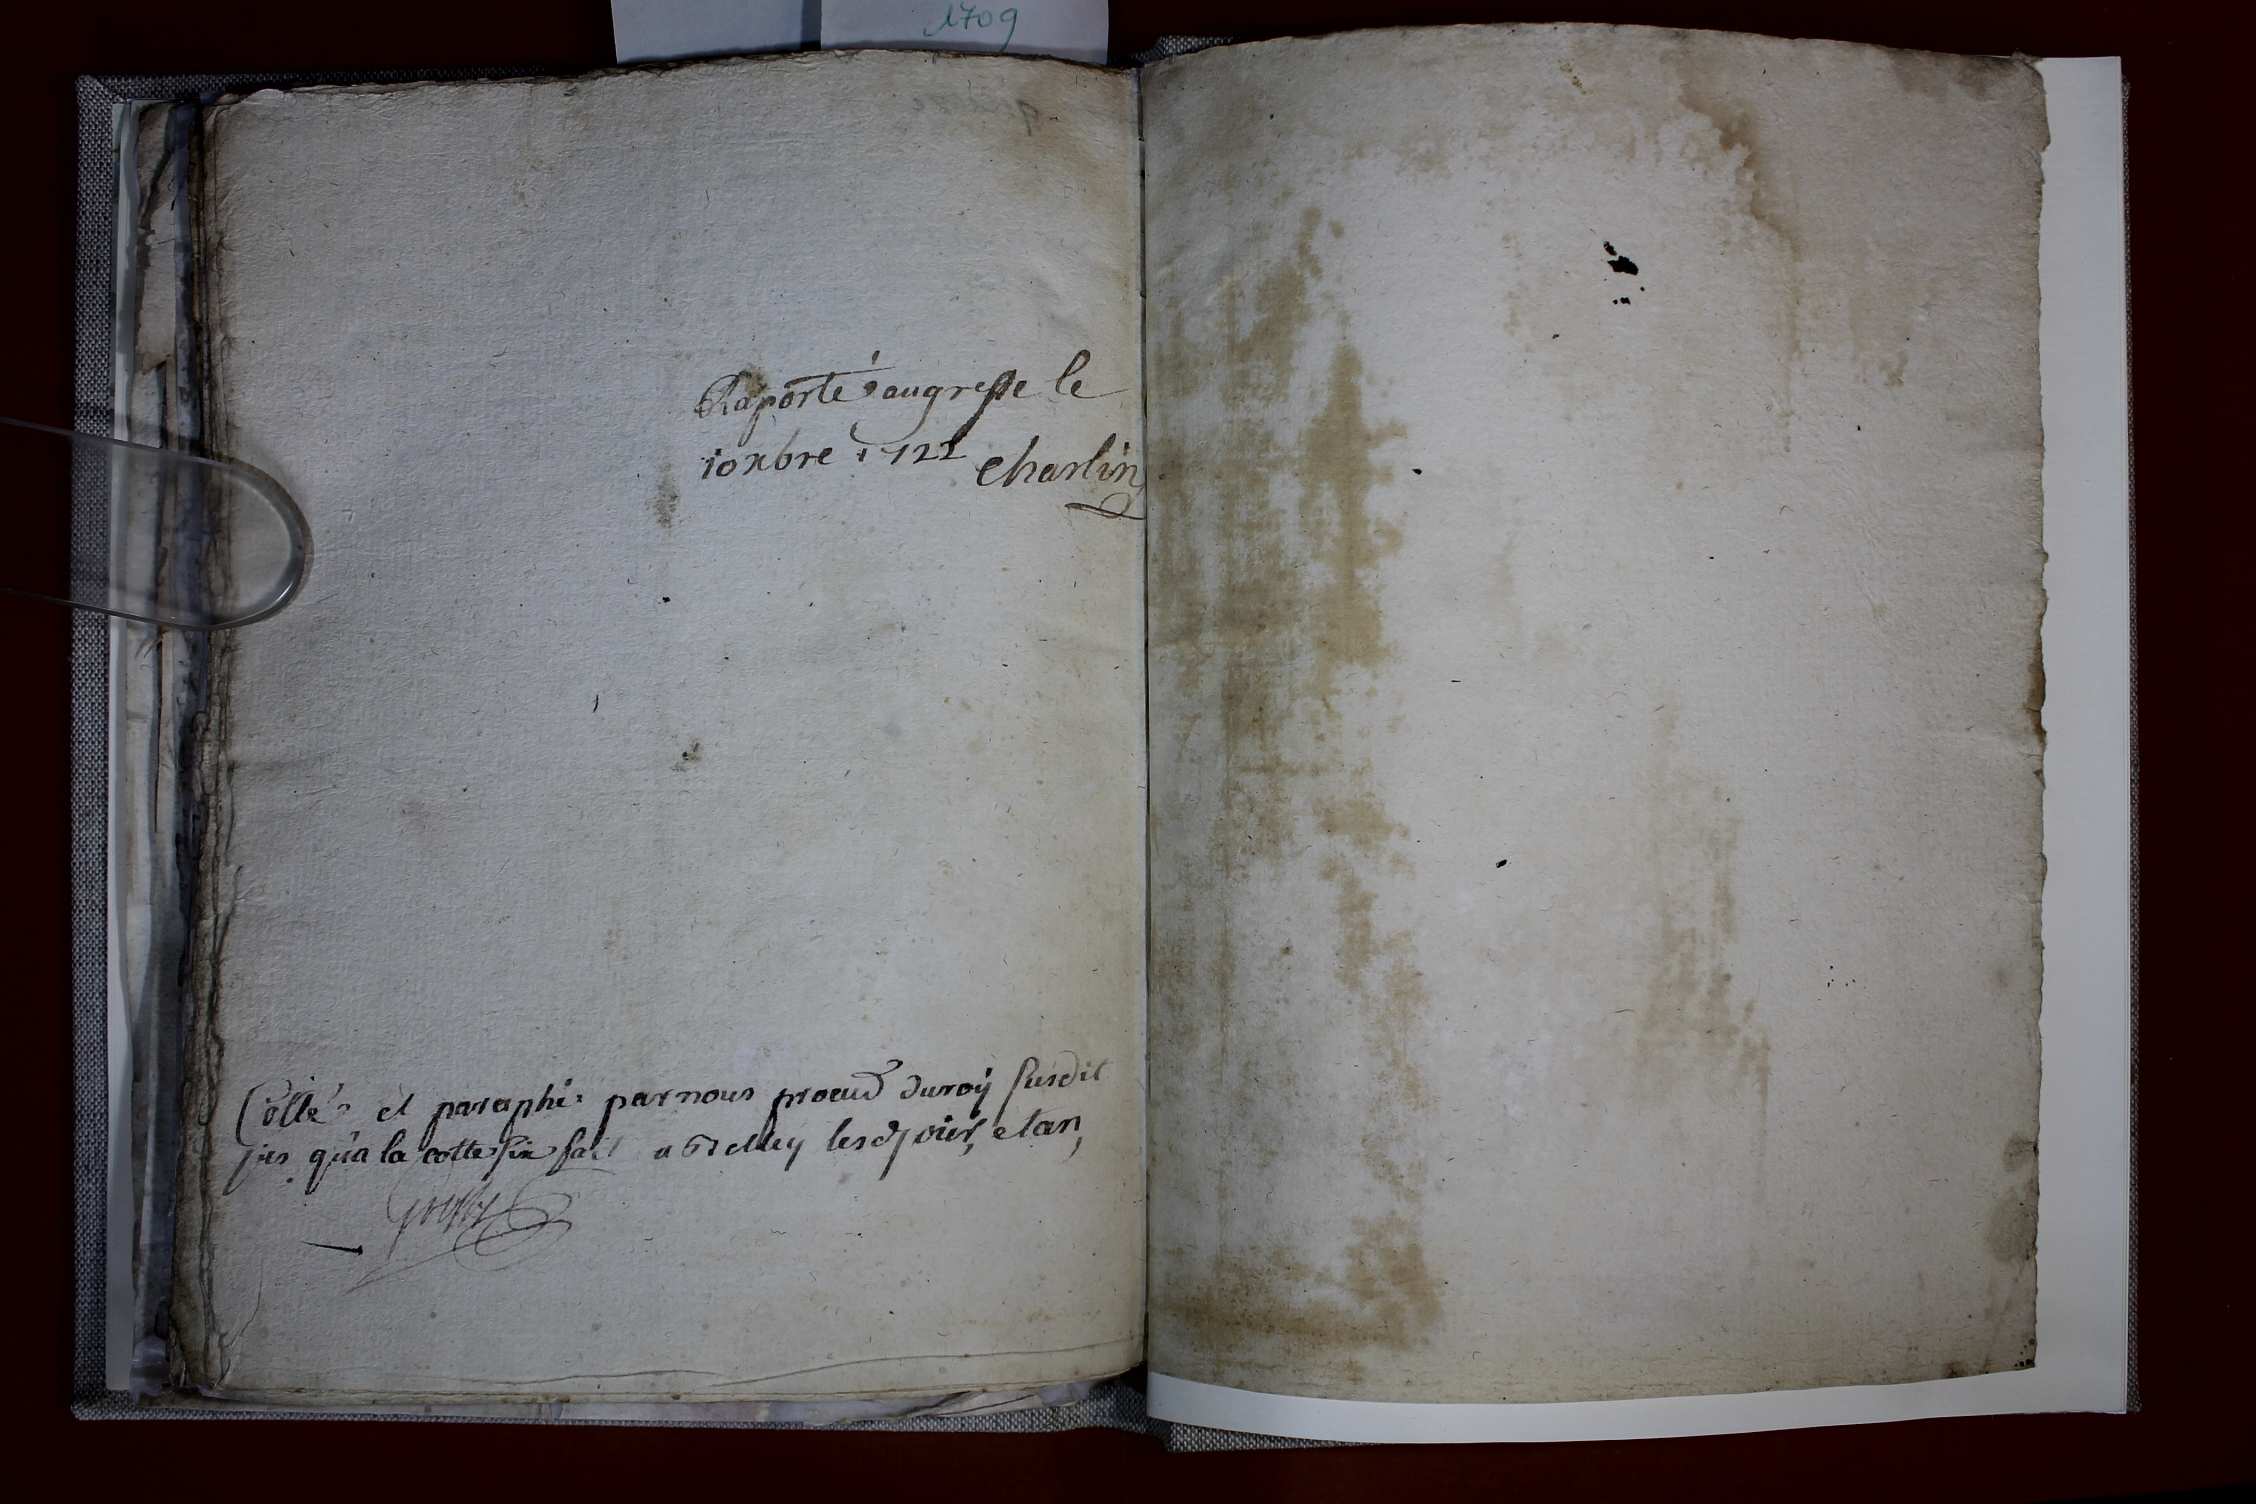 1709
Raporté au greffe le
10 xbre 1722
Charlin
Cotté et paraphé par nous procur du roy susdit
jus qu'a la cotte six fait a lesd jour, et an,